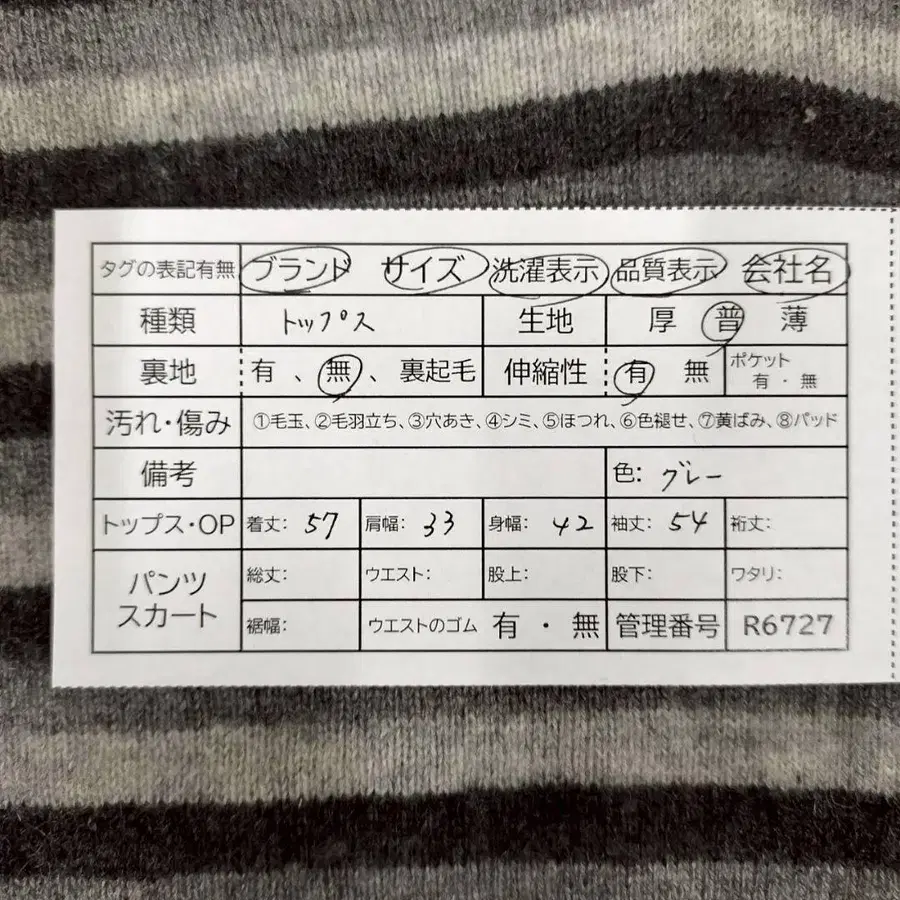 タグの表記有無 ブランド サイズ 洗濯表示 品質表示 会社名
種類 トップス 生地 厚 普 薄
裏地 有 、 無 、 裏起毛 伸縮性 有 無 ポケット 有 ・ 無
汚れ・傷み ①毛玉、②毛羽立ち、③穴あき、④シミ、⑤ほつれ、⑥色褪せ、⑦黄ばみ、⑧パッド
備考 色: グレー
トップス・OP 着丈: 57 肩幅: 33 身幅: 42 袖丈: 54 裄丈:
パンツ スカート 総丈: ウエスト: 股上: 股下: ワタリ:
裾幅: ウエストのゴム 有 ・ 無 管理番号 R6727